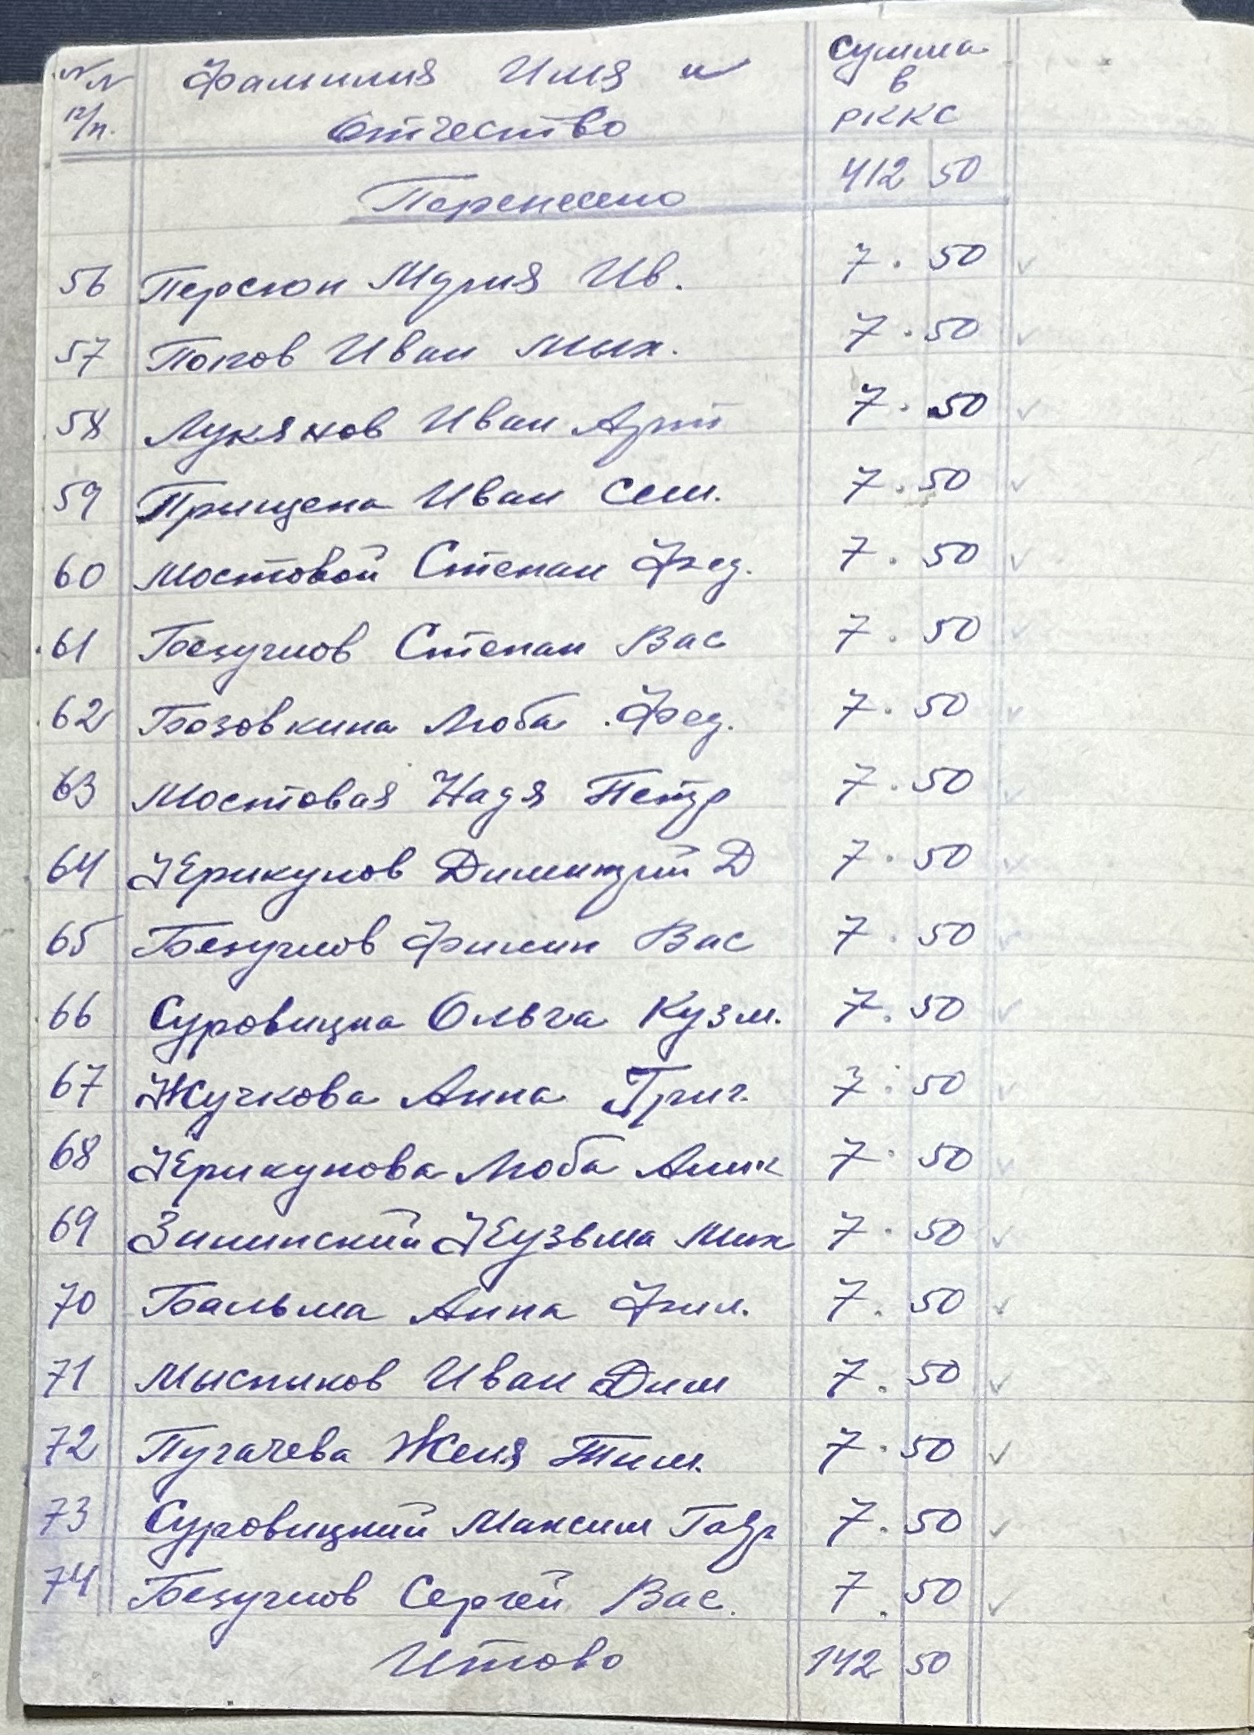 №№ Фамилия Имя и Сумма в
п/п. Отчество РККС
Перенесено 412 50
56 Персион Мария Ив. 7. 50
57 Попов Иван Мих. 7. 50
58 Лукянов Иван Арт 7. 50
59 Прищепа Иван Сем. 7. 50
60 Мостовой Степан Фед. 7. 50
61 Безуглов Степан Вас 7. 50
62 Бозовкина Люба Фед. 7. 50
63 Мостовая Надя Петр 7. 50
64 Керикунов Димитрий Д 7. 50
65 Безуглов Филип Вас 7. 50
66 Суровицка Ольга Кузм. 7. 50
67 Жучкова Анна Григ. 7. 50
68 Керикунова Люба 7. 50
69 Зипинский Кузьма Мих 7. 50
70 Бальма Анна Фил. 7. 50
71 Мысников Иван Дим 7. 50
72 Пугачева Женя Тим. 7. 50
73 Суровицкий Максим Гавр 7. 50
74 Безуглов Сергей Вас. 7. 50
Итово 142 50